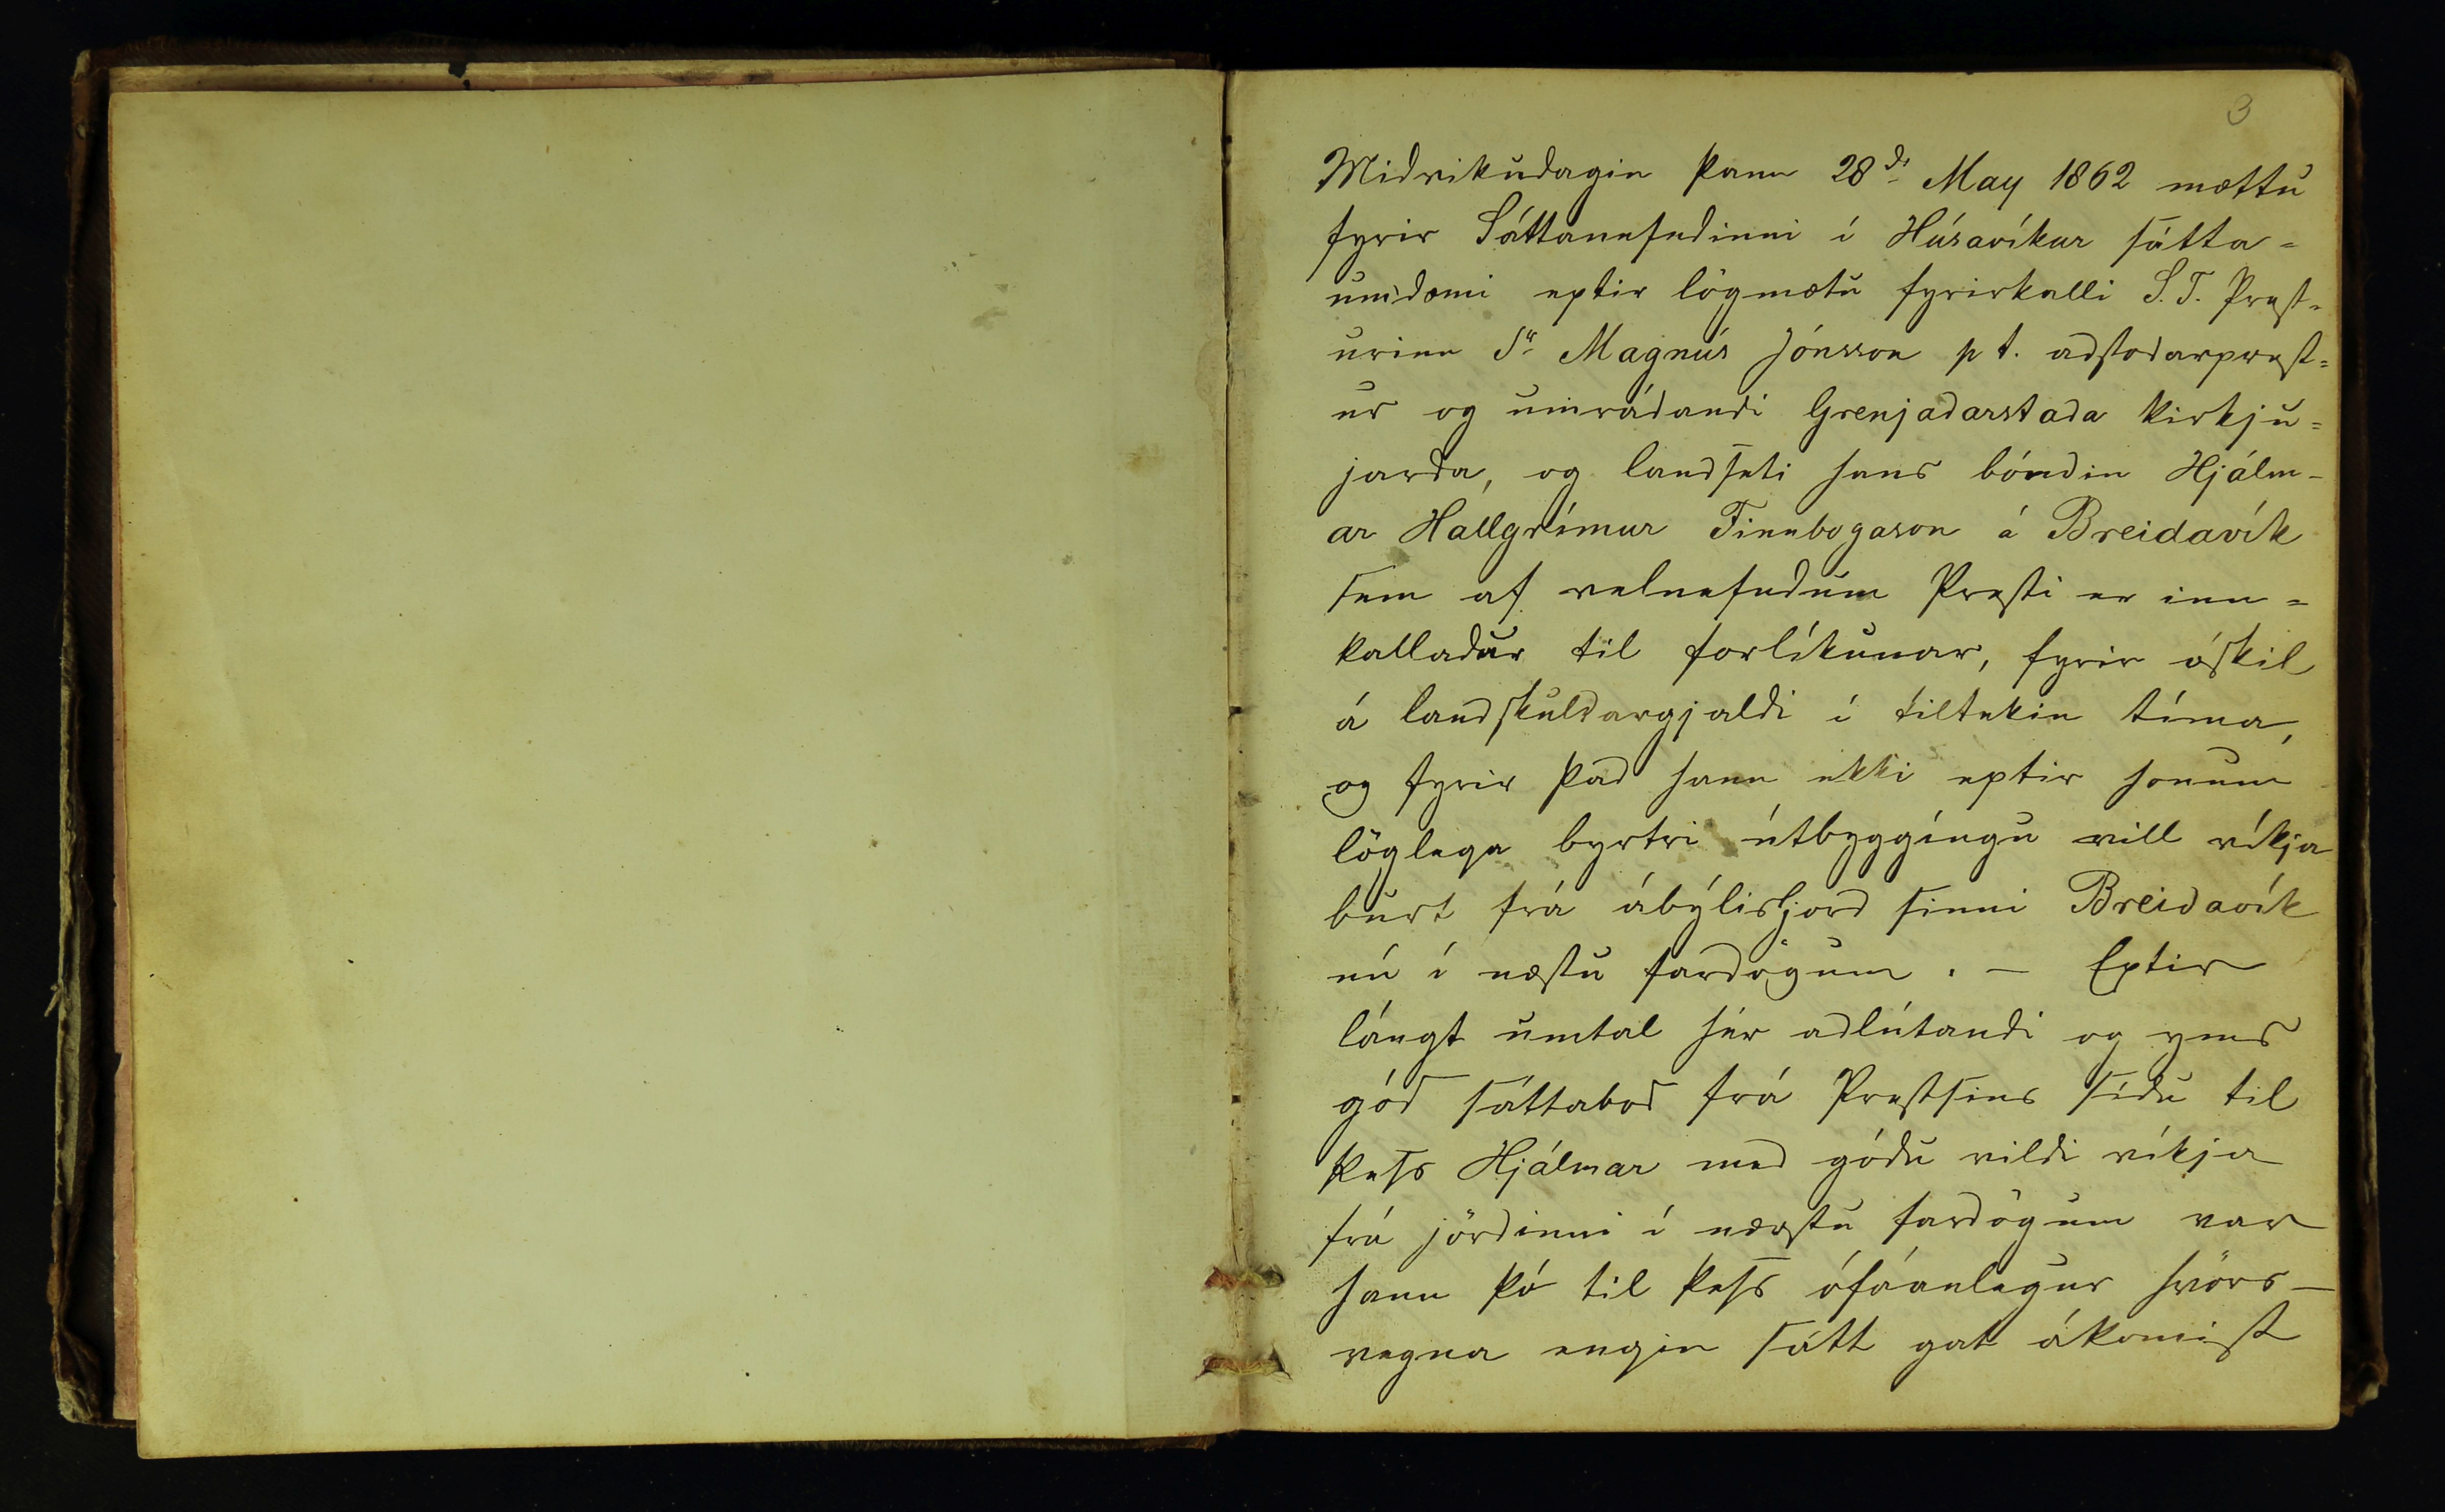 3
Midvikudagin þann 28d. May 1862 mættu
fyrir Sáttanefndinni í Húsavíkur sátta=
umdæmi eptir lögmætu fyrirkalli S.T. Prest=
urinn Sr. Magnús Jónsson p t. adstodarprest=
ur og umrádandi Grenjadarstada kirkju=
jarda, og landseti hans bóndin Hjálm-
ar Hallgrímur Finnbogason á Breidavík
sem af velnefndum Presti er inn=
kalladur til forlíkunar, fyrir óskil
á landskuldargjaldi í tiltekin tíma,
og fyrir þad hann ekki eptir honum
löglega byrtri útbyggíngu vill víkja
burt frá ábýlisjord sinni Breidavík
nú í næstu fardögum. — Eptir
lángt umtal hér adlútandi og yms
gód sáttabod frá Prestsins sídu til
þess Hjálmar med gódu vildi víkja
frá jördinni í næstu fardögum var
hann þó til þess ófáanlegur hvörs-
vegna engin sátt gat ákomist